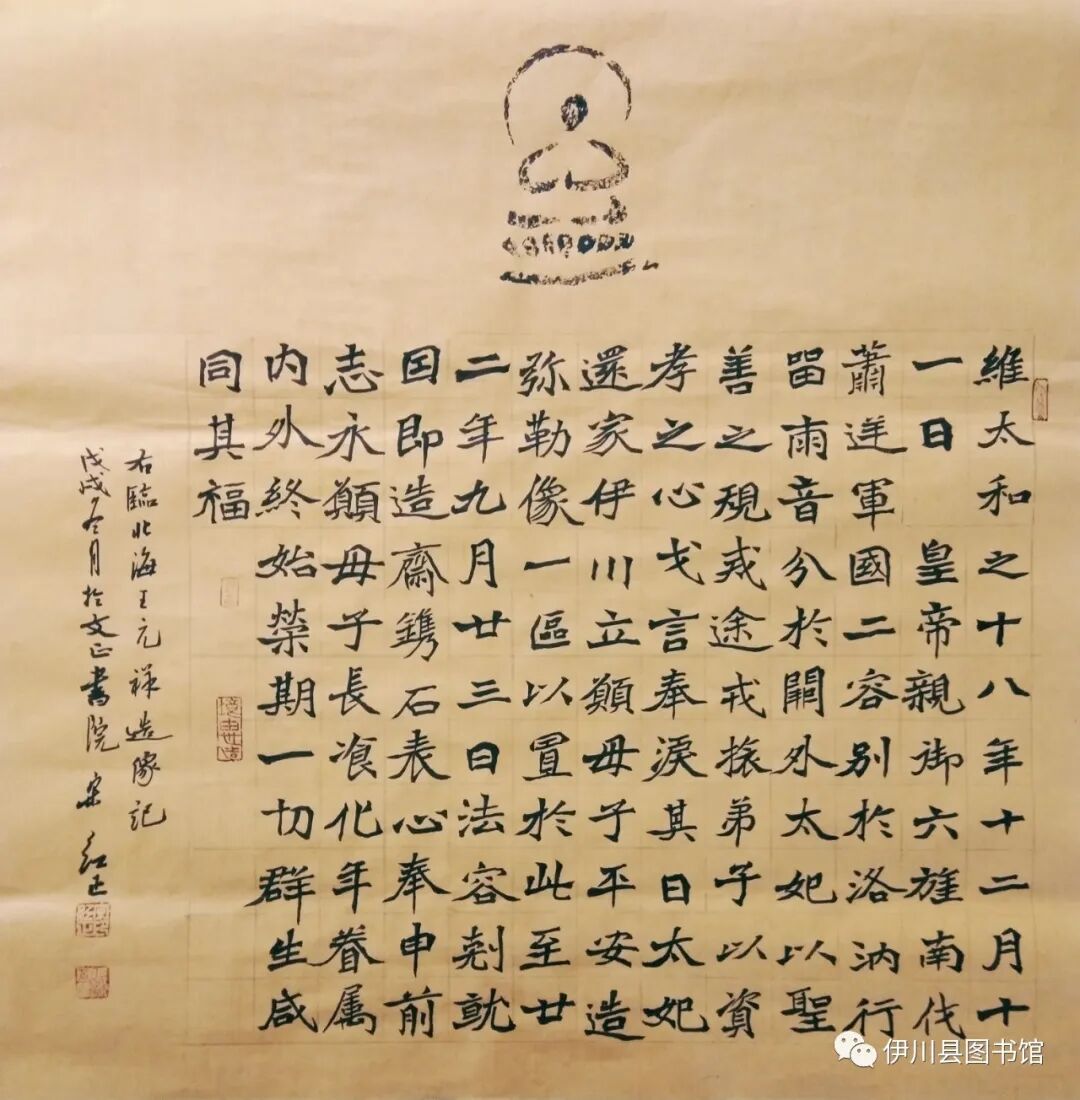 維太和之十八年十二月十
一日皇帝親御六旌南伐
蕭逆軍國二容別於洛汭行
留雨音分於闗外太妃以聖
善之規戒途戎振弟子以資
孝之心戈言奉淚其日太妃
還家伊川立願母子平安造
弥勒像一區以置於此至廿
二年九月廿三日法容剋就
因即造齋鐫石表心奉申前
志永願母子長飡化年眷属
内外終始榮期一切群生咸
同其福
右臨北海王元祥造像記
戊戌冬月於文正書院宋紅正
伊川县图书馆